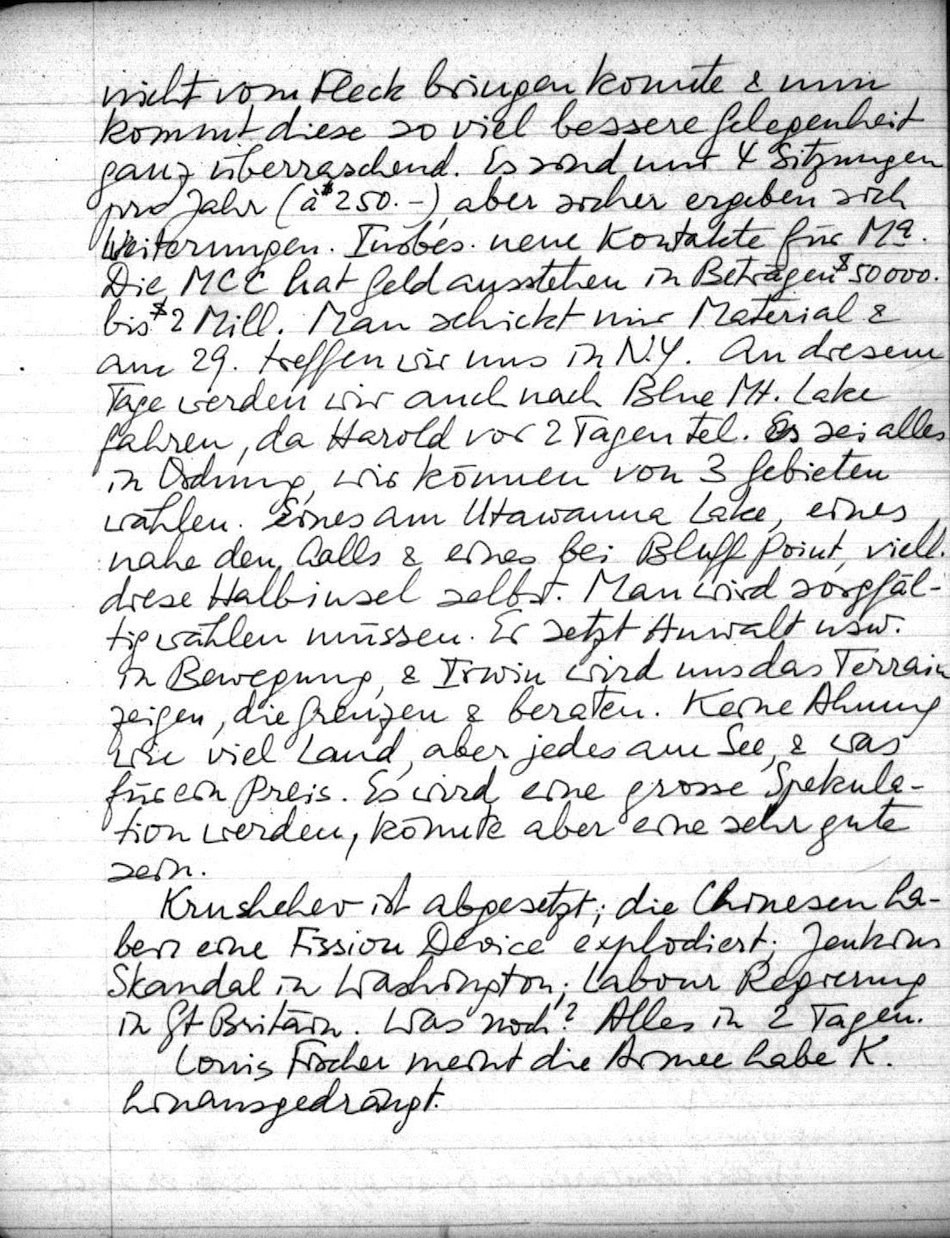 nicht vom Fleck bringen konnte & nun
kommt diese so viel bessere Gelegenheit
ganz überraschend. Es sind nur 4 Sitzungen
pro Jahr (à $250.-), aber sicher ergeben sich
Weiterungen. Insbes. neue Kontakte für Ma.
Die MCC hat Geld ausstehen in Beträgen $50000.
bis $2 Mill. Man schickt mir Material &
am 29. treffen wir uns in N.Y. An diesem
Tage werden wir auch nach Blue Mt. Lake
fahren, da Harold vor 2 Tagen tel. Es sei alles
in Ordnung, wir können von 3 Gebieten
wählen. Eines am Utawanna Lake, eines
nahe den Calls & eines bei Bluff Point, viell.
diese Halbinsel selbst. Man wird sorgfäl-
tig wählen müssen. Er setzt Anwalt usw.
in Bewegung, & Irwin wird uns das Terrain
zeigen, die Grenzen & beraten. Keine Ahnung
wie viel Land, aber jedes am See, & was
für ein Preis. Es wird eine grosse Spekula-
tion werden, könnte aber eine sehr gute
sein.
Krushchev ist abgesetzt; die Chinesen ha-
ben eine Fission Device explodiert; Jenkins
Skandal in Washington; Labour Regierung
in Gt Britain. Was noch? Alles in 2 Tagen.
Louis Fischer meint die Armee habe K.
hinausgedrängt.